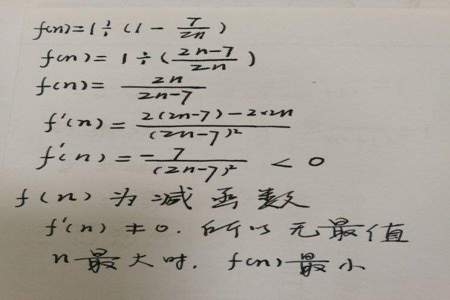 f(n)=1÷(1-7/2n)
f(n)=1÷(2n-7/2n)
f(n)=2n/2n-7
f'(n)=2(2n-7)-2×2n/(2n-7)²
f'(n)=-7/(2n-7)² <0
f(n)为减函数
f'(n)≠0.所以无最值
n最大时.f(n)最小